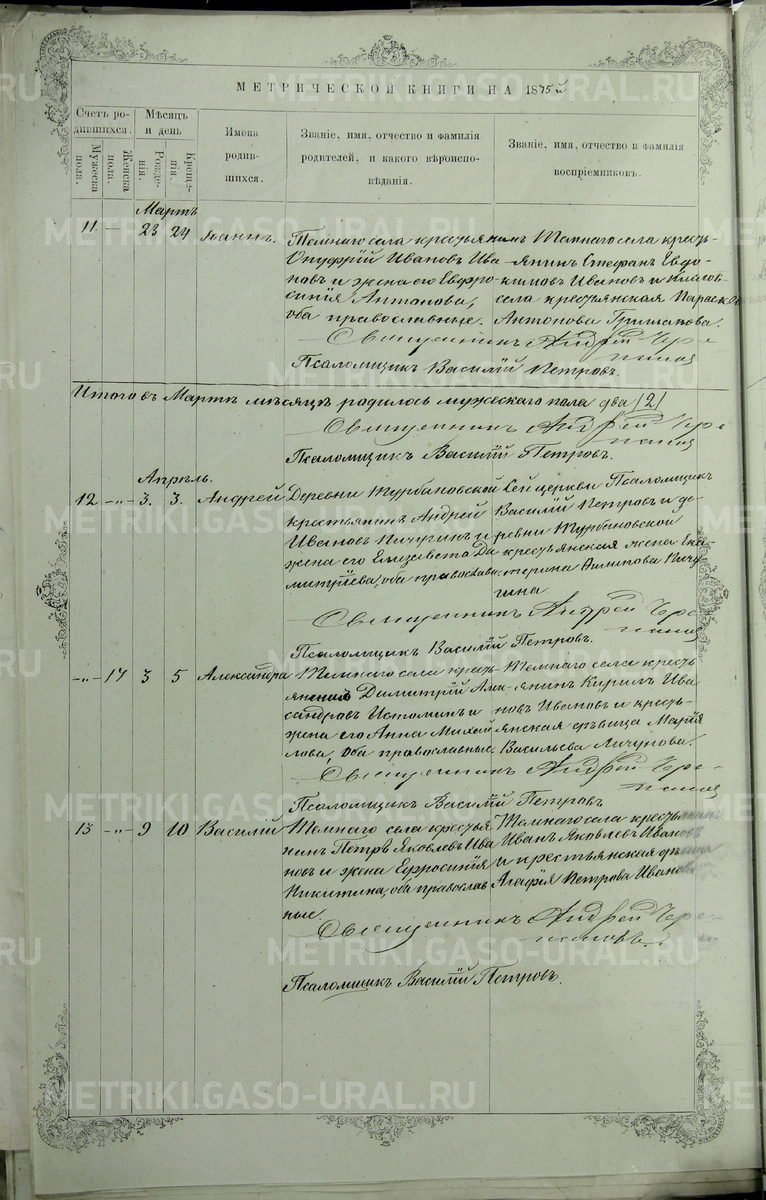 МЕТРИЧЕСКОЙ КНИГИ НА 1875й
Счетъ ро-
дившихся.
Мужеска
пола.
Женска
пола.
Мѣсяцъ
и день
Рожде-
нія.
Креще-
нія.
Имена
родив-
шихся.
Званіе, имя, отчество и фамилія
родителей, и какого вѣроиспо-
вѣданія.
Званіе, имя, отчество и фамилія
воспріемниковъ.
Мартъ
11 — 23 24 Іоаннъ.
Темнаго села крестьянинъ
Онуфрій Ивановъ Ива
новъ и жена его Евфро
синія Антонова,
оба православные.
Темнаго села кресть-
янинъ Стефанъ Евдо-
кимовъ Ивановъ и
села крестьянская
Антонова
Священникъ Андрей
Псаломщикъ Василій Петровъ.
Итого въ Мартѣ мѣсяцѣ родилось мужескаго пола два (2)
Священникъ Андрей
Псаломщикъ Василій Петровъ.
Апрѣль.
12 -„- 3. 3. Андрей
Деревни Турбановской
крестьянинъ Андрей
Ивановъ Пичугинъ и
жена его Елизавета Ди
митріева, оба православ.
Сей церкви Псаломщикъ
Василій Петровъ и де-
ревни Турбановской
крестьянская жена Ека
терина Пичу
гина
Священникъ Андрей
Псаломщикъ Василій Петровъ.
-„- 14 3 5 Александра
Темнаго села кресть-
янинъ Димитрій Алек
сандровъ Истоминъ и
жена его Анна Михай
лова, оба православные.
Темнаго села кресть
янинъ Кирилъ Ива
новъ Ивановъ и кресть-
янская дѣвица Марія
Васильева
Священникъ Андрей
Псаломщикъ Василій Петровъ
13 -„- 9 10 Василій
Темнаго села крестья
нинъ Петръ Яковлевъ Ива
новъ и жена Ефросинія
Никитина, оба православ
ные.
Темнаго села крестьянинъ
Иванъ Яковлевъ Ивановъ
и крестьянская дѣвица
Агафія Петрова Иванова
Священникъ Андрей
Псаломщикъ Василій Петровъ.
METRIKI.GASO-URAL.RU